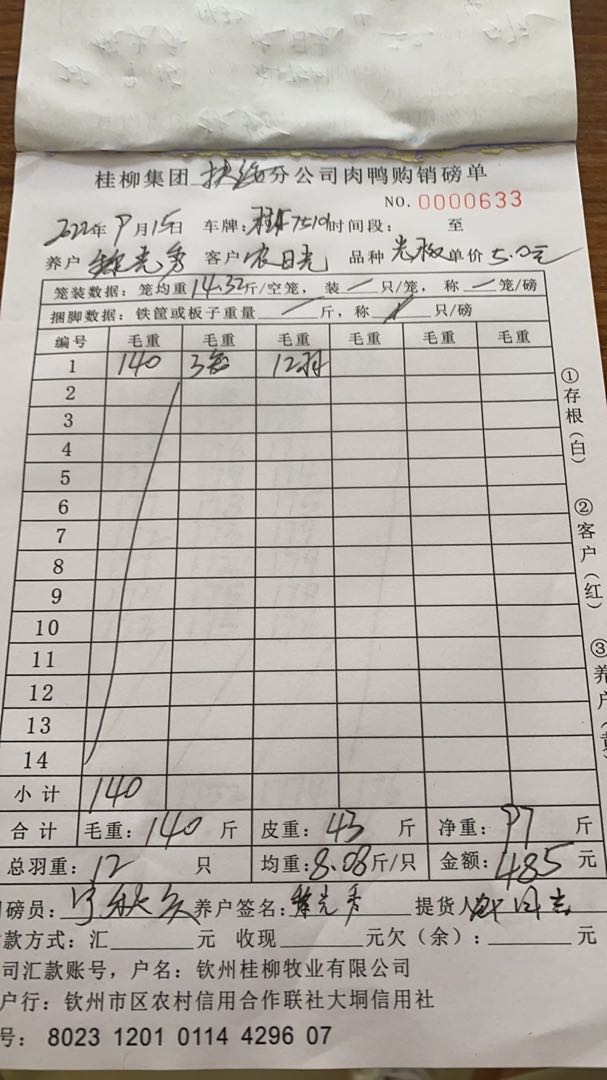 桂柳集团 扶绥分公司肉鸭购销磅单
NO. 0000633
2022年 9月15日 车牌: 桂 7519 时间段: 至
养户 黎克秀 客户 农日光 品种 单价 5.0元
笼装数据: 笼均重14.32斤/空笼, 装 — 只/笼, 称 — 笼/磅
捆脚数据: 铁筐或板子重量 — 斤, 称 只/磅
编号 毛重 毛重 毛重 毛重 毛重 毛重
1 140 3笼 12羽
2
3
4
5
6
7
8
9
10
11
12
13
14
小计 140
合计 毛重: 140 斤 皮重: 43 斤 净重: 97 斤
总羽重: 12 只 均重: 8.08斤/只 金额: 485 元
磅员: 养户签名: 黎克秀 提货人
款方式: 汇 元 收现 元欠(余): 元
司汇款账号, 户名: 钦州桂柳牧业有限公司
户行: 钦州市区农村信用合作联社大垌信用社
号: 8023 1201 0114 4296 07
①存根(白)
②客户(红)
③养户(黄)